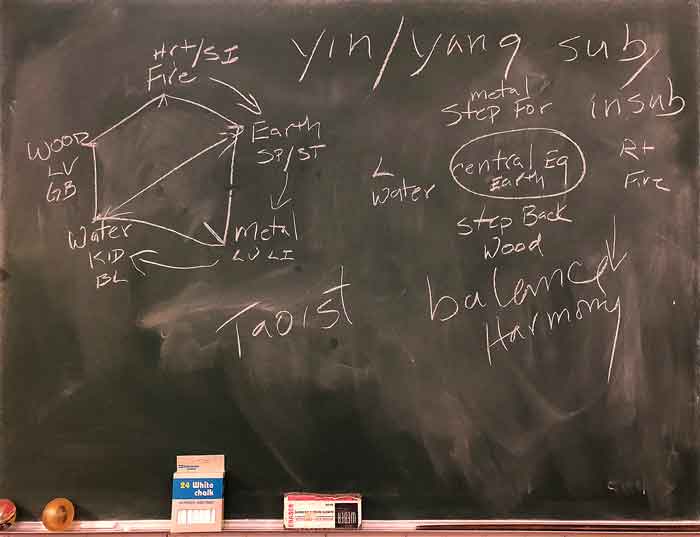 yin/yang sub/
insub
Hrt/SI
Fire
Earth
SP/ST
metal
LU LI
Water
KID
BL
WOOD
LV
GB
metal
Step For
L
Water
central Eq
Earth
Rt
Fire
Step Back
Wood
Taoist
balanced
Harmony
24 White
chalk
ERASER